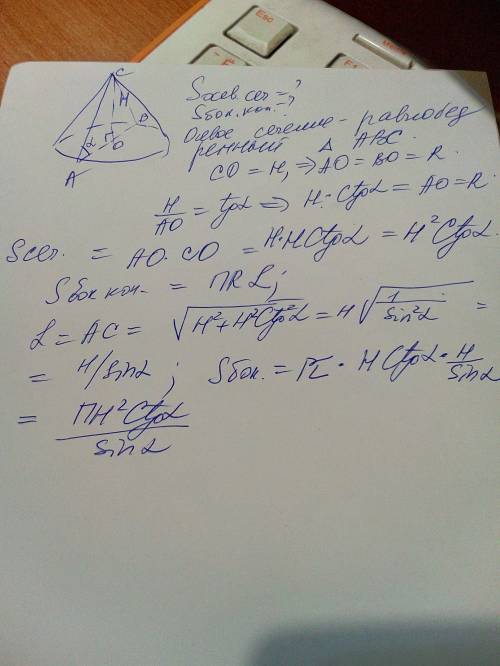 Esc
C
H
B
α
O
A
Sосев. сеч = ?
Sбок. кон. - ?
Осевое сечение - равнобед
ренный Δ ABC.
CO = H, ⇒ AO = BO = R.
H/AO = tgα ⇒ H · Ctgα = AO = R.
Sсеч. = AO · CO = H · H Ctgα = H² Ctgα.
Sбок кон. = ПRL;
L = AC = √(H² + H² Ctg²α) = H √(1/sin²α) =
= H/sinα ; Sбок. = П · H Ctgα · H/sinα
= ПH² Ctgα / sinα